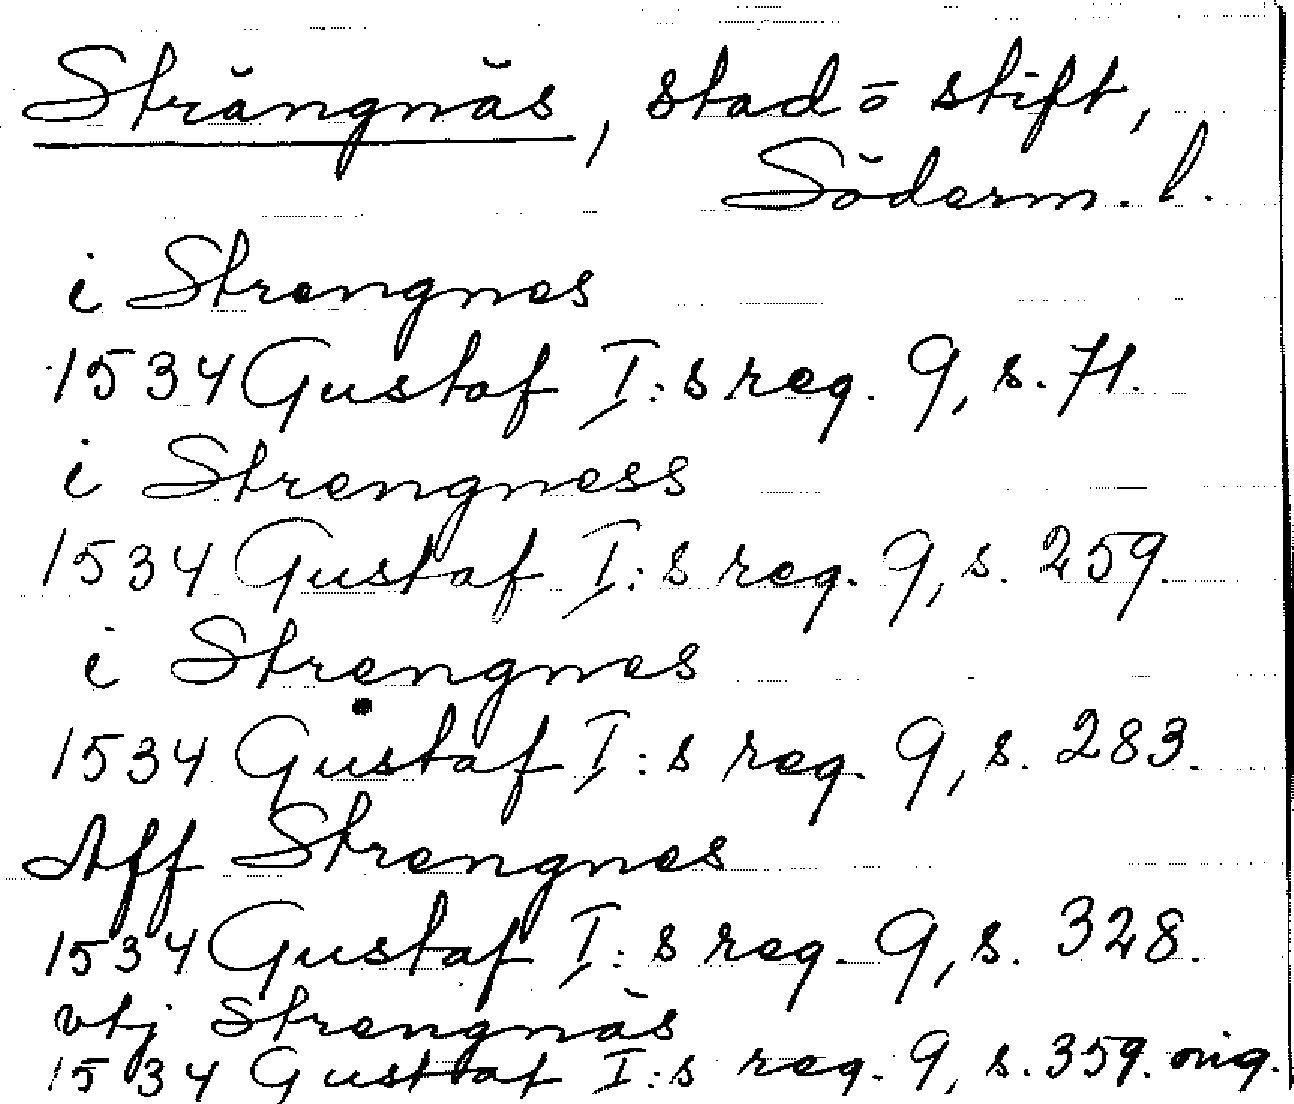 Strängnäs, stad o stift,
Söderm. l.
i Strengnes
1534 Gustaf I:s reg. 9, s. 71.
i Strengness
1534 Gustaf I:s reg. 9, s. 259.
i Strengnes
1534 Gustaf I:s reg. 9, s. 283.
Aff Strengnes
1534 Gustaf I:s reg. 9, s. 328.
vtj Strengnäs
1534 Gustaf I:s reg. 9, s. 359. orig.